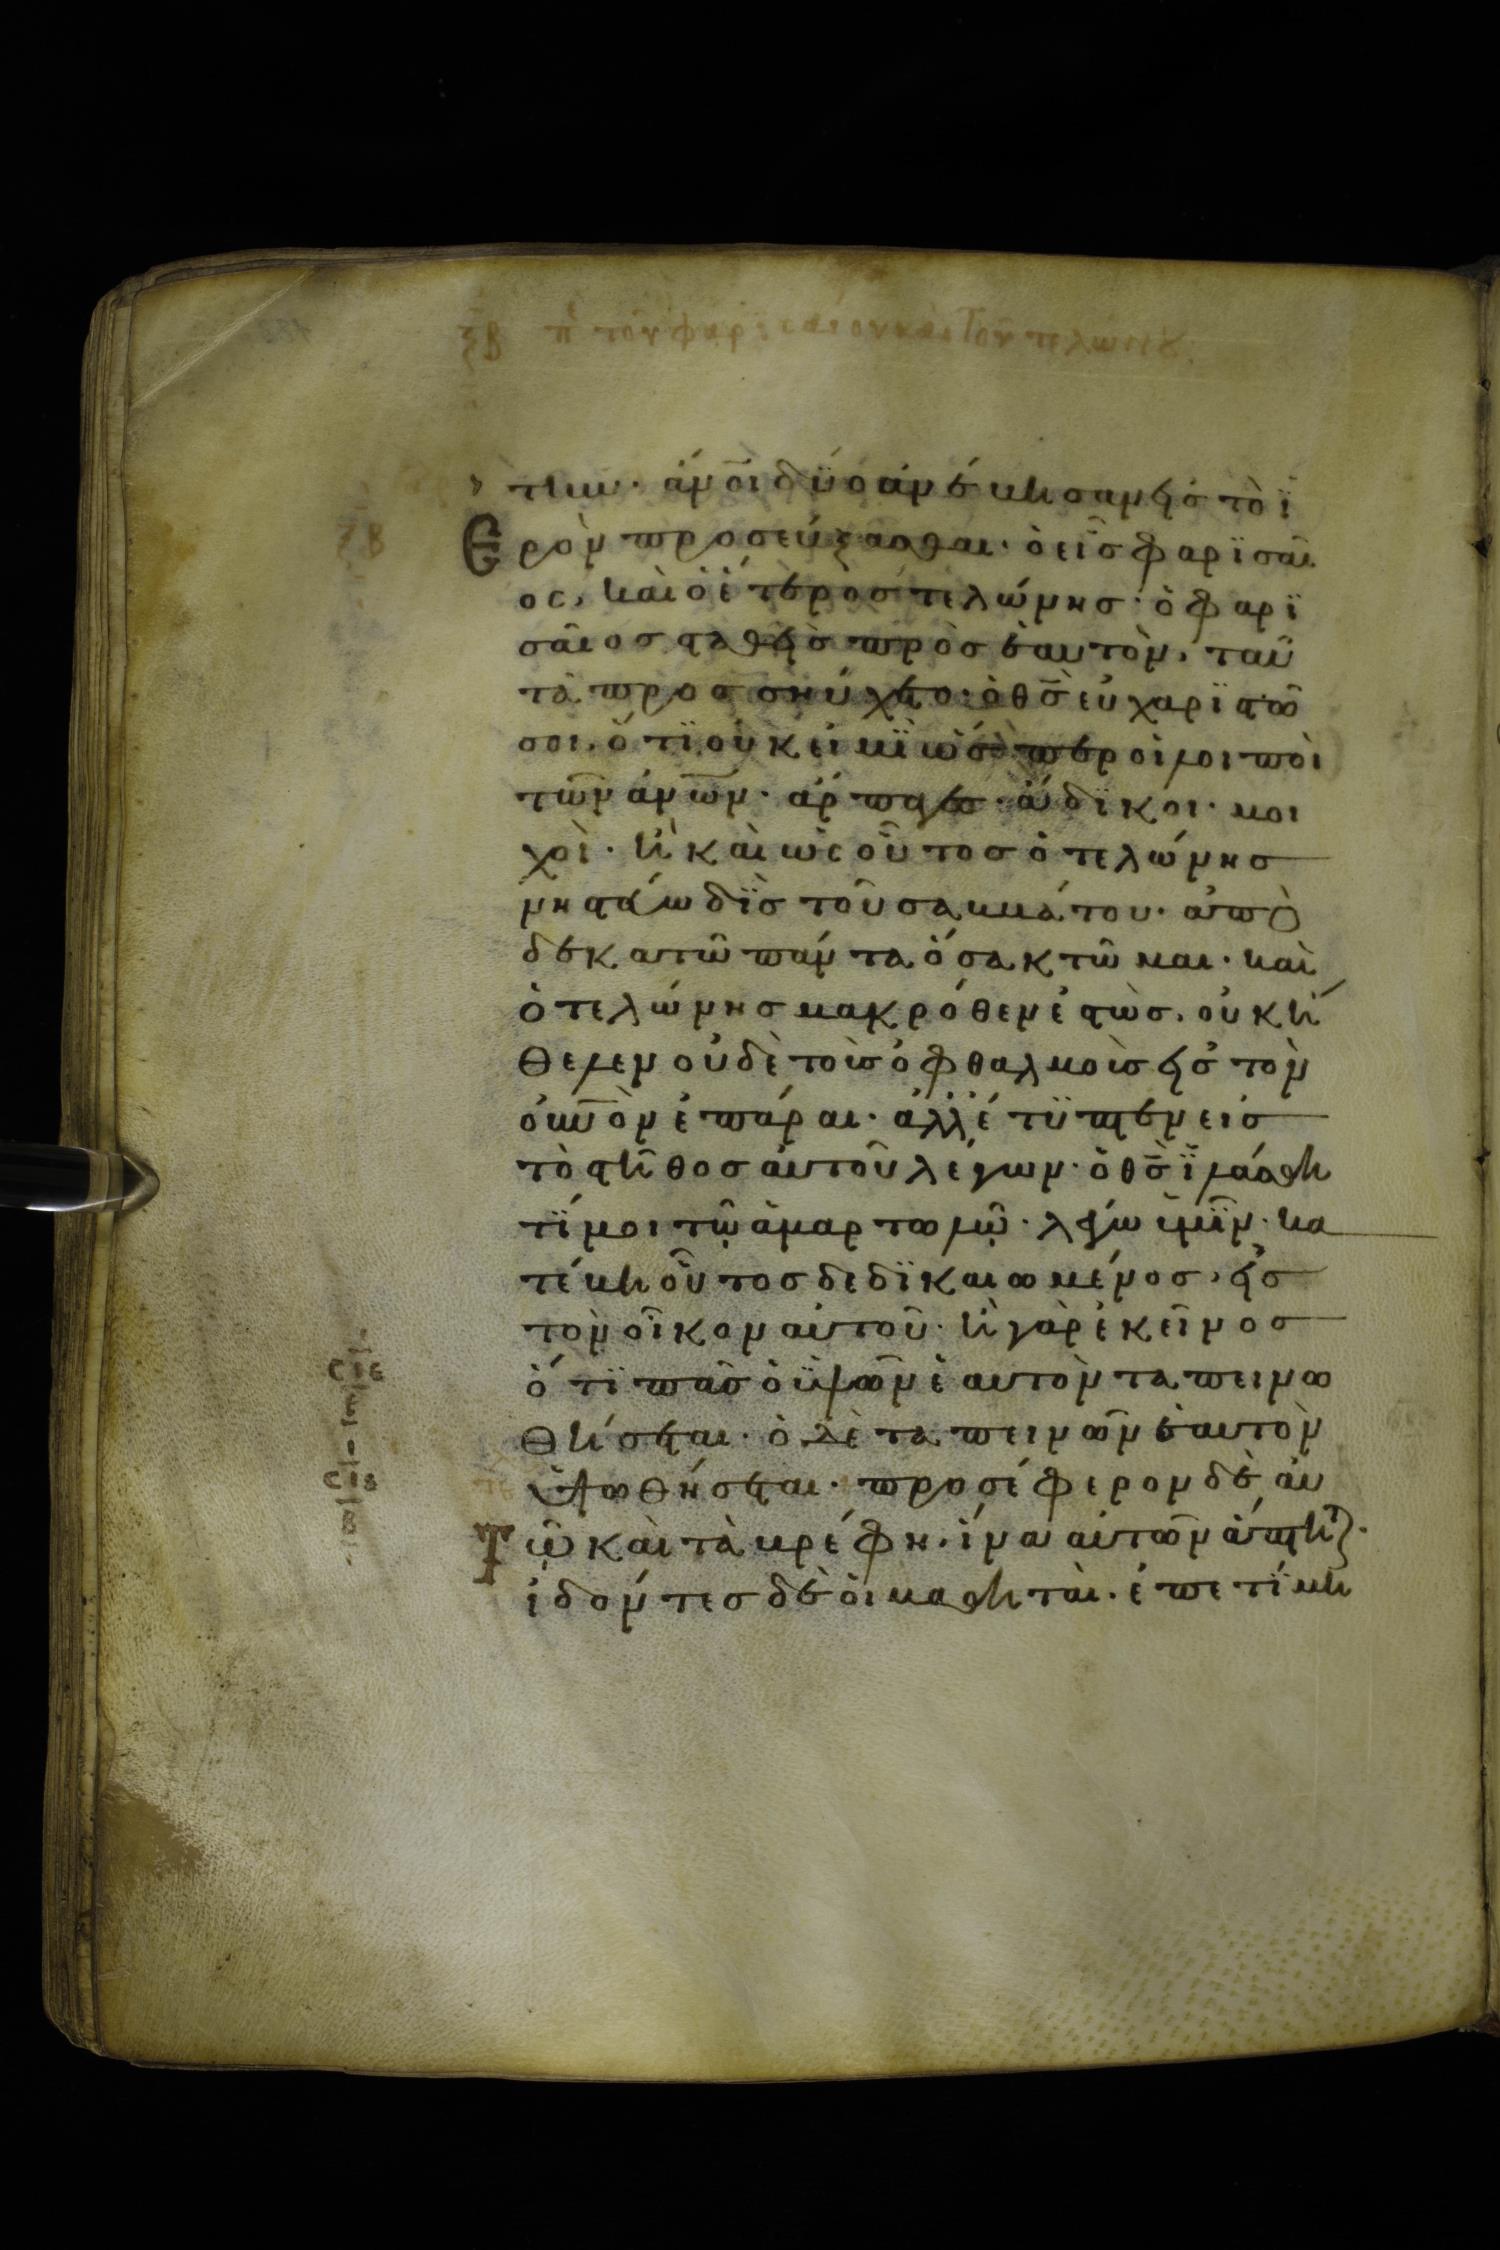 ξβ π τοῦ φαρϊσαίου και τοῦ τελώνου
την· ἄνοι δύο ἀνέβησαν εἰς τὸ ϊ
ερὸν προσεύξασθαι· ὁ εἷς φαρϊσαῖ
ος, καὶ ὁ ἕτερος τελώνης· ὁ φαρϊ
σαῖος σταθεὶς πρὸς ἑαυτὸν, ταῦ
τα προσηύχετο· ὁ θς εὐχαρϊστῶ
σοι, ὅτϊ οὐκ εἰμϊ ὡς ὡσπερ οἱ λοιποὶ
τῶν ἀνων· ἅρπαγες· ἄδϊκοι· μοι
χοὶ· ἢ καὶ ὡς οὗτος ὁ τελώνης
νηστεύω δὶς τοῦ σαββάτου· ἀπο
δεκατῶ πάντα ὅσα κτῶμαι· καὶ
ὁ τελώνης μακρόθεν ἑστὼς, οὐκ ἤ
θελεν οὐδὲ τοὺς ὀφθαλμοὺς εἰς τὸν
οὐνὸν ἐπάραι· ἀλλ' ἔτϋπτεν εἰς
τὸ στῆθος αὐτοῦ λέγων· ὁ θς ϊλάσθη
τί μοι τῷ ἁμαρτωλῷ· λέγω ὑμῖν· κα
τέβη οὗτος δεδϊκαιωμένος, εἰς
τὸν οἶκον αὐτοῦ· ἢ γὰρ ἐκεῖνος
ὅτϊ πᾶς ὁ ϋψῶν ἑαυτὸν ταπεινω
θήσεται· ὁ δὲ ταπεινῶν ἑαυτὸν
ὑψωθήσεται· προσέφερον δὲ αὐ
τῷ καὶ τὰ βρέφη, ἵνα αὐτῶν ἅπτητ·
ἰδόντες δὲ οἱ μαθηταὶ· ἐπετίμη